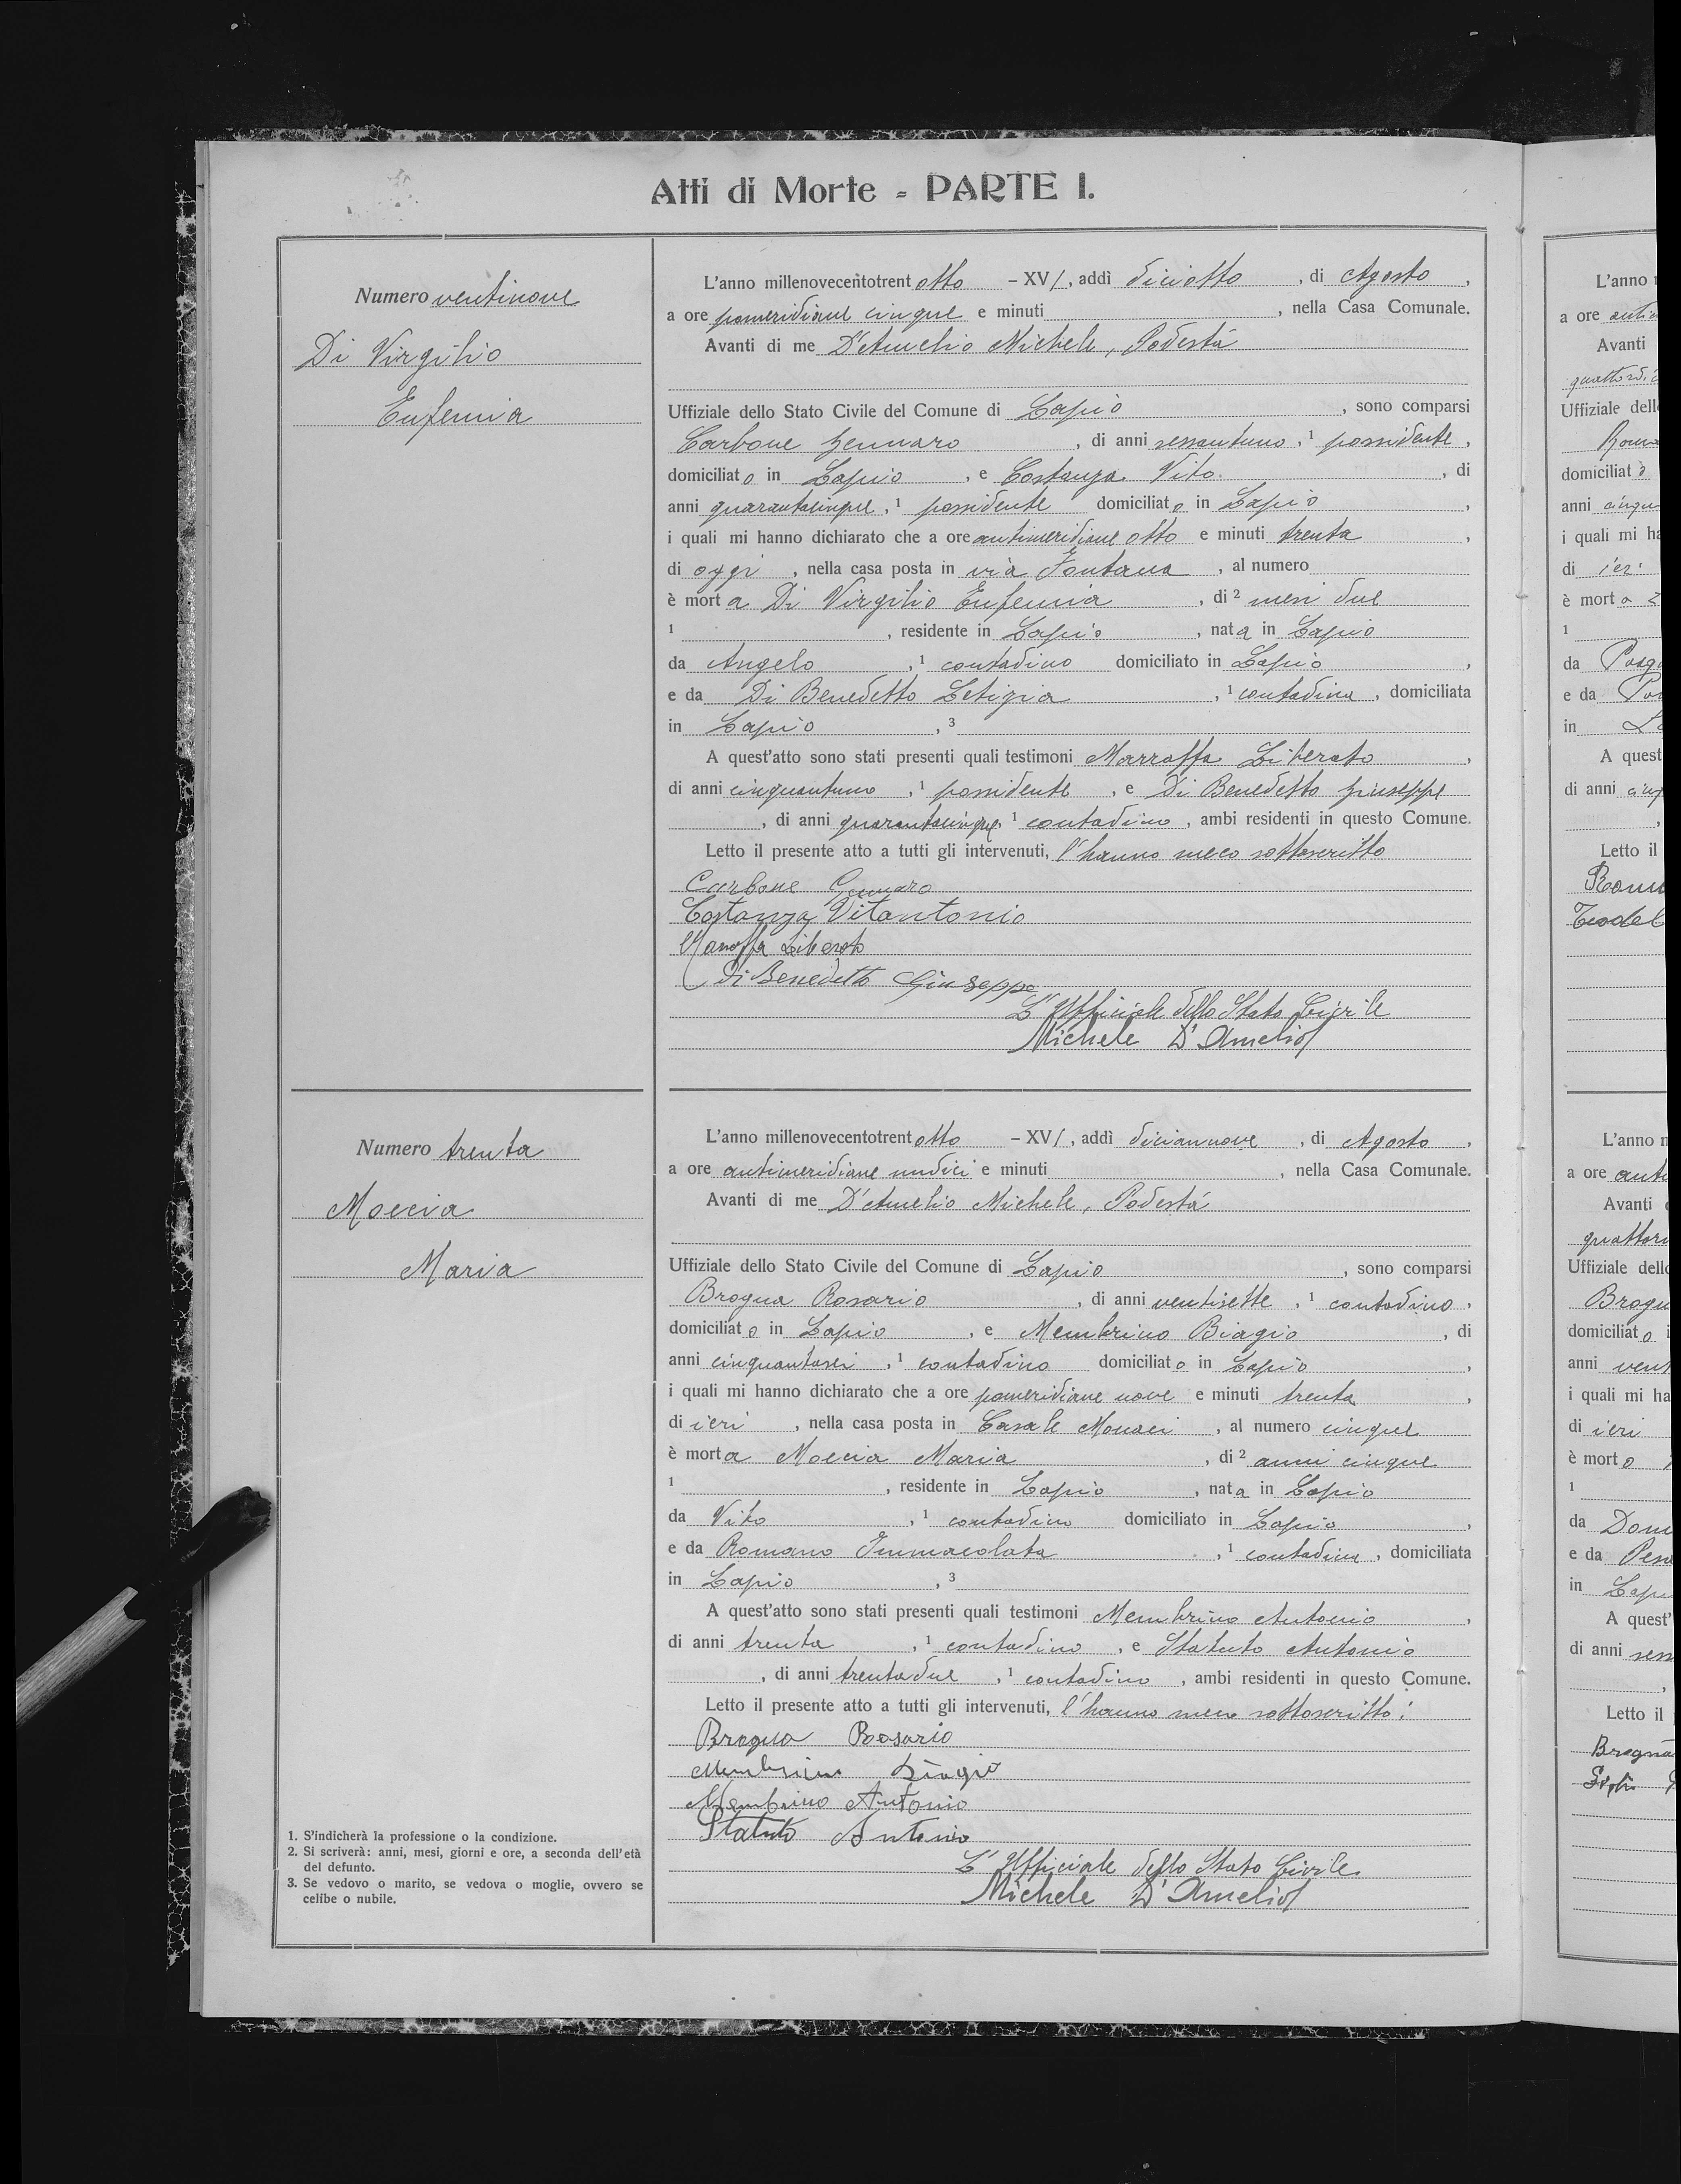 Atti di Morte - PARTE I.
Numero ventinove
Di Virgilio
Eufemia
L'anno millenovecentotrentotto - XVI, addì diciotto, di Agosto,
a ore pomeridiane cinque e minuti , nella Casa Comunale.
Avanti di me D'Amelio Michele, Podestà
Uffiziale dello Stato Civile del Comune di Lapio, sono comparsi
Carbone Gennaro, di anni sessantuno, 1 possidente,
domiciliato in Lapio, e Costanza Vito, di
anni quarantacinque, 1 possidente domiciliato in Lapio,
i quali mi hanno dichiarato che a ore antimeridiane otto e minuti trenta,
di oggi, nella casa posta in via Fontana, al numero
è morta Di Virgilio Eufemia, di 2 mesi due
1 , residente in Lapio, nata in Lapio
da Angelo, 1 contadino domiciliato in Lapio,
e da Di Benedetto Letizia, 1 contadina, domiciliata
in Lapio, 3
A quest'atto sono stati presenti quali testimoni Marraffa Liberato,
di anni cinquantuno, 1 possidente, e Di Benedetto Giuseppe
, di anni quarantacinque, 1 contadino, ambi residenti in questo Comune.
Letto il presente atto a tutti gli intervenuti, l'hanno meco sottoscritto
Carbone Gennaro
Costanza Vitantonio
Marraffa Liberato
Di Benedetto Giuseppe
L'Ufficiale dello Stato Civile
Michele D'Amelio
Numero trenta
Moccia
Maria
L'anno millenovecentotrentotto - XVI, addì diciannove, di Agosto,
a ore antimeridiane undici e minuti , nella Casa Comunale.
Avanti di me D'Amelio Michele, Podestà
Uffiziale dello Stato Civile del Comune di Lapio, sono comparsi
Brogna Rosario, di anni ventisette, 1 contadino,
domiciliato in Lapio, e Membrino Biagio, di
anni cinquantasei, 1 contadino domiciliato in Lapio,
i quali mi hanno dichiarato che a ore pomeridiane nove e minuti trenta,
di ieri, nella casa posta in Casale Monaci, al numero cinque
è morta Moccia Maria, di 2 anni cinque
1 , residente in Lapio, nata in Lapio
da Vito, 1 contadino domiciliato in Lapio,
e da Romano Immacolata, 1 contadina, domiciliata
in Lapio, 3
A quest'atto sono stati presenti quali testimoni Membrino Antonio,
di anni trenta, 1 contadino, e Statuto Antonio
, di anni trentadue, 1 contadino, ambi residenti in questo Comune.
Letto il presente atto a tutti gli intervenuti, l'hanno meco sottoscritto:
Brogna Rosario
Membrino Biagio
Membrino Antonio
Statuto Antonio
L'Ufficiale dello Stato Civile
Michele D'Amelio
1. S'indicherà la professione o la condizione.
2. Si scriverà: anni, mesi, giorni e ore, a seconda dell'età
del defunto.
3. Se vedovo o marito, se vedova o moglie, ovvero se
celibe o nubile.
L'anno
a ore
Avanti
Uffiziale
domiciliato
anni
i quali mi
di ieri
è morta
1
da
e da
in
A quest
di anni
Letto il
L'anno
a ore
Avanti
Uffiziale
domiciliato
anni
i quali mi ha
di ieri
è morto
1
da
e da
in
A quest'
di anni
Letto il